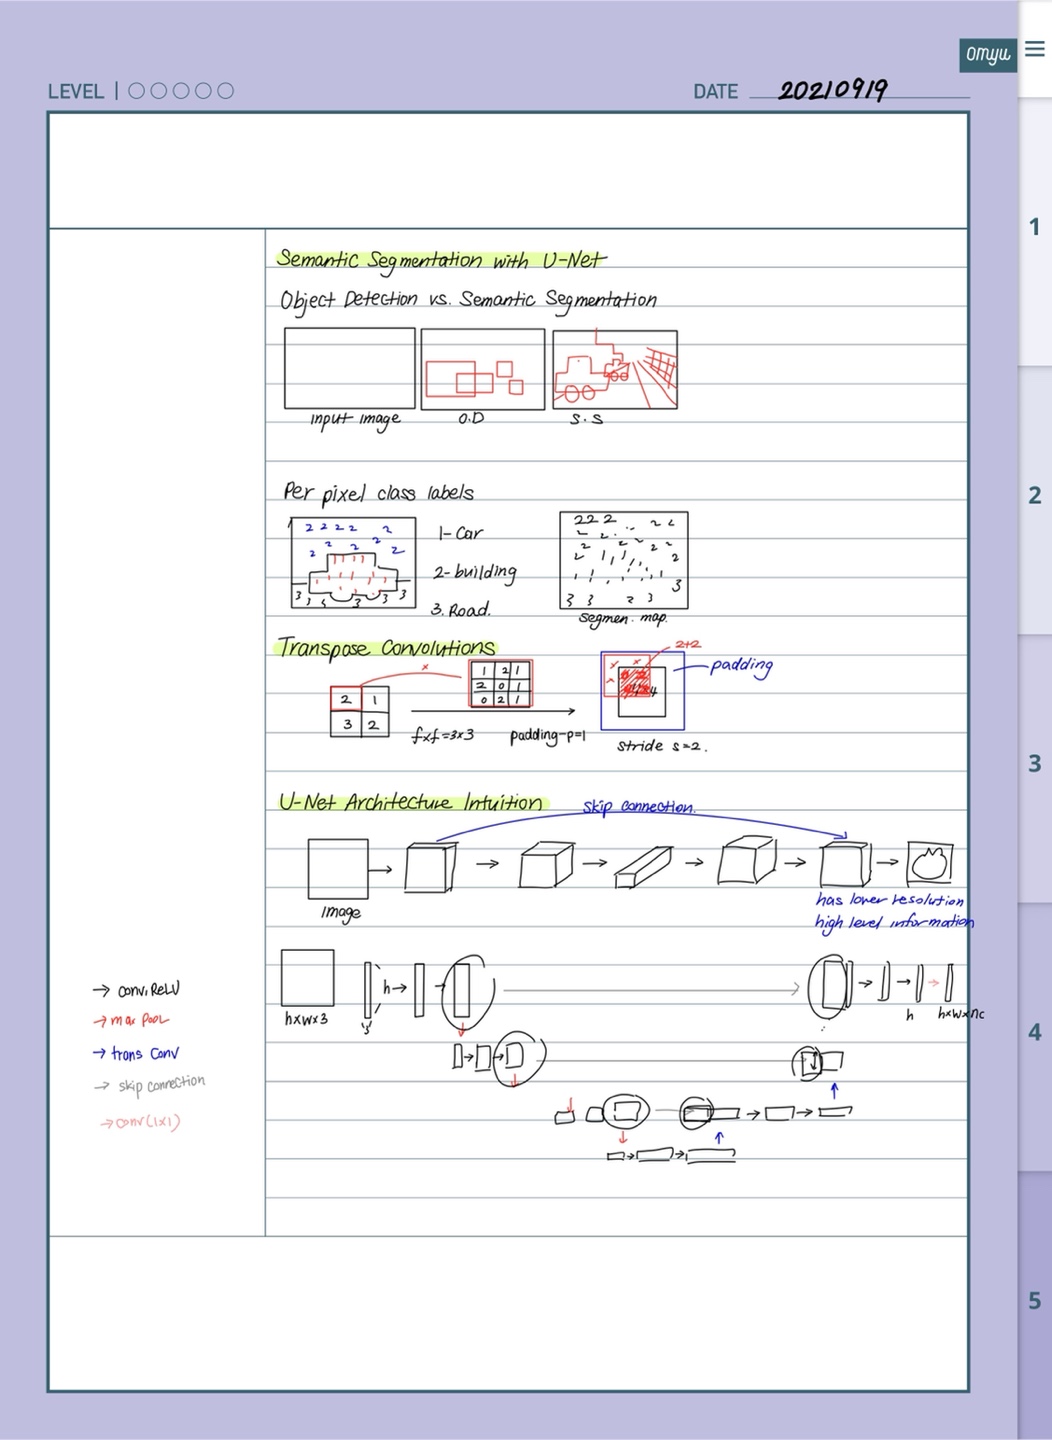 omyu
LEVEL
DATE 20210919
1
2
3
4
5
Semantic Segmentation with U-Net
Object Detection vs. Semantic Segmentation
input image
O.D
S.S
Per pixel class labels
2 2 2 2 2
2 2 2 2 2
1- Car
2- building
3. Road.
3 3 3 3 3 3
2 2 2 2 2
segmen. map.
Transpose Convolutions
2+2
x
padding
2 1
3 2
1 2 1
2 0 1
0 2 1
fxf=3x3
padding-p=1
stride s=2.
U-Net Architecture Intuition
skip connection.
image
has lower resolution
high level information
h
hxwx3
h
hxwxnc
→ conv, ReLU
→ max pool
→ trans Conv
→ skip connection
→ conv(1x1)